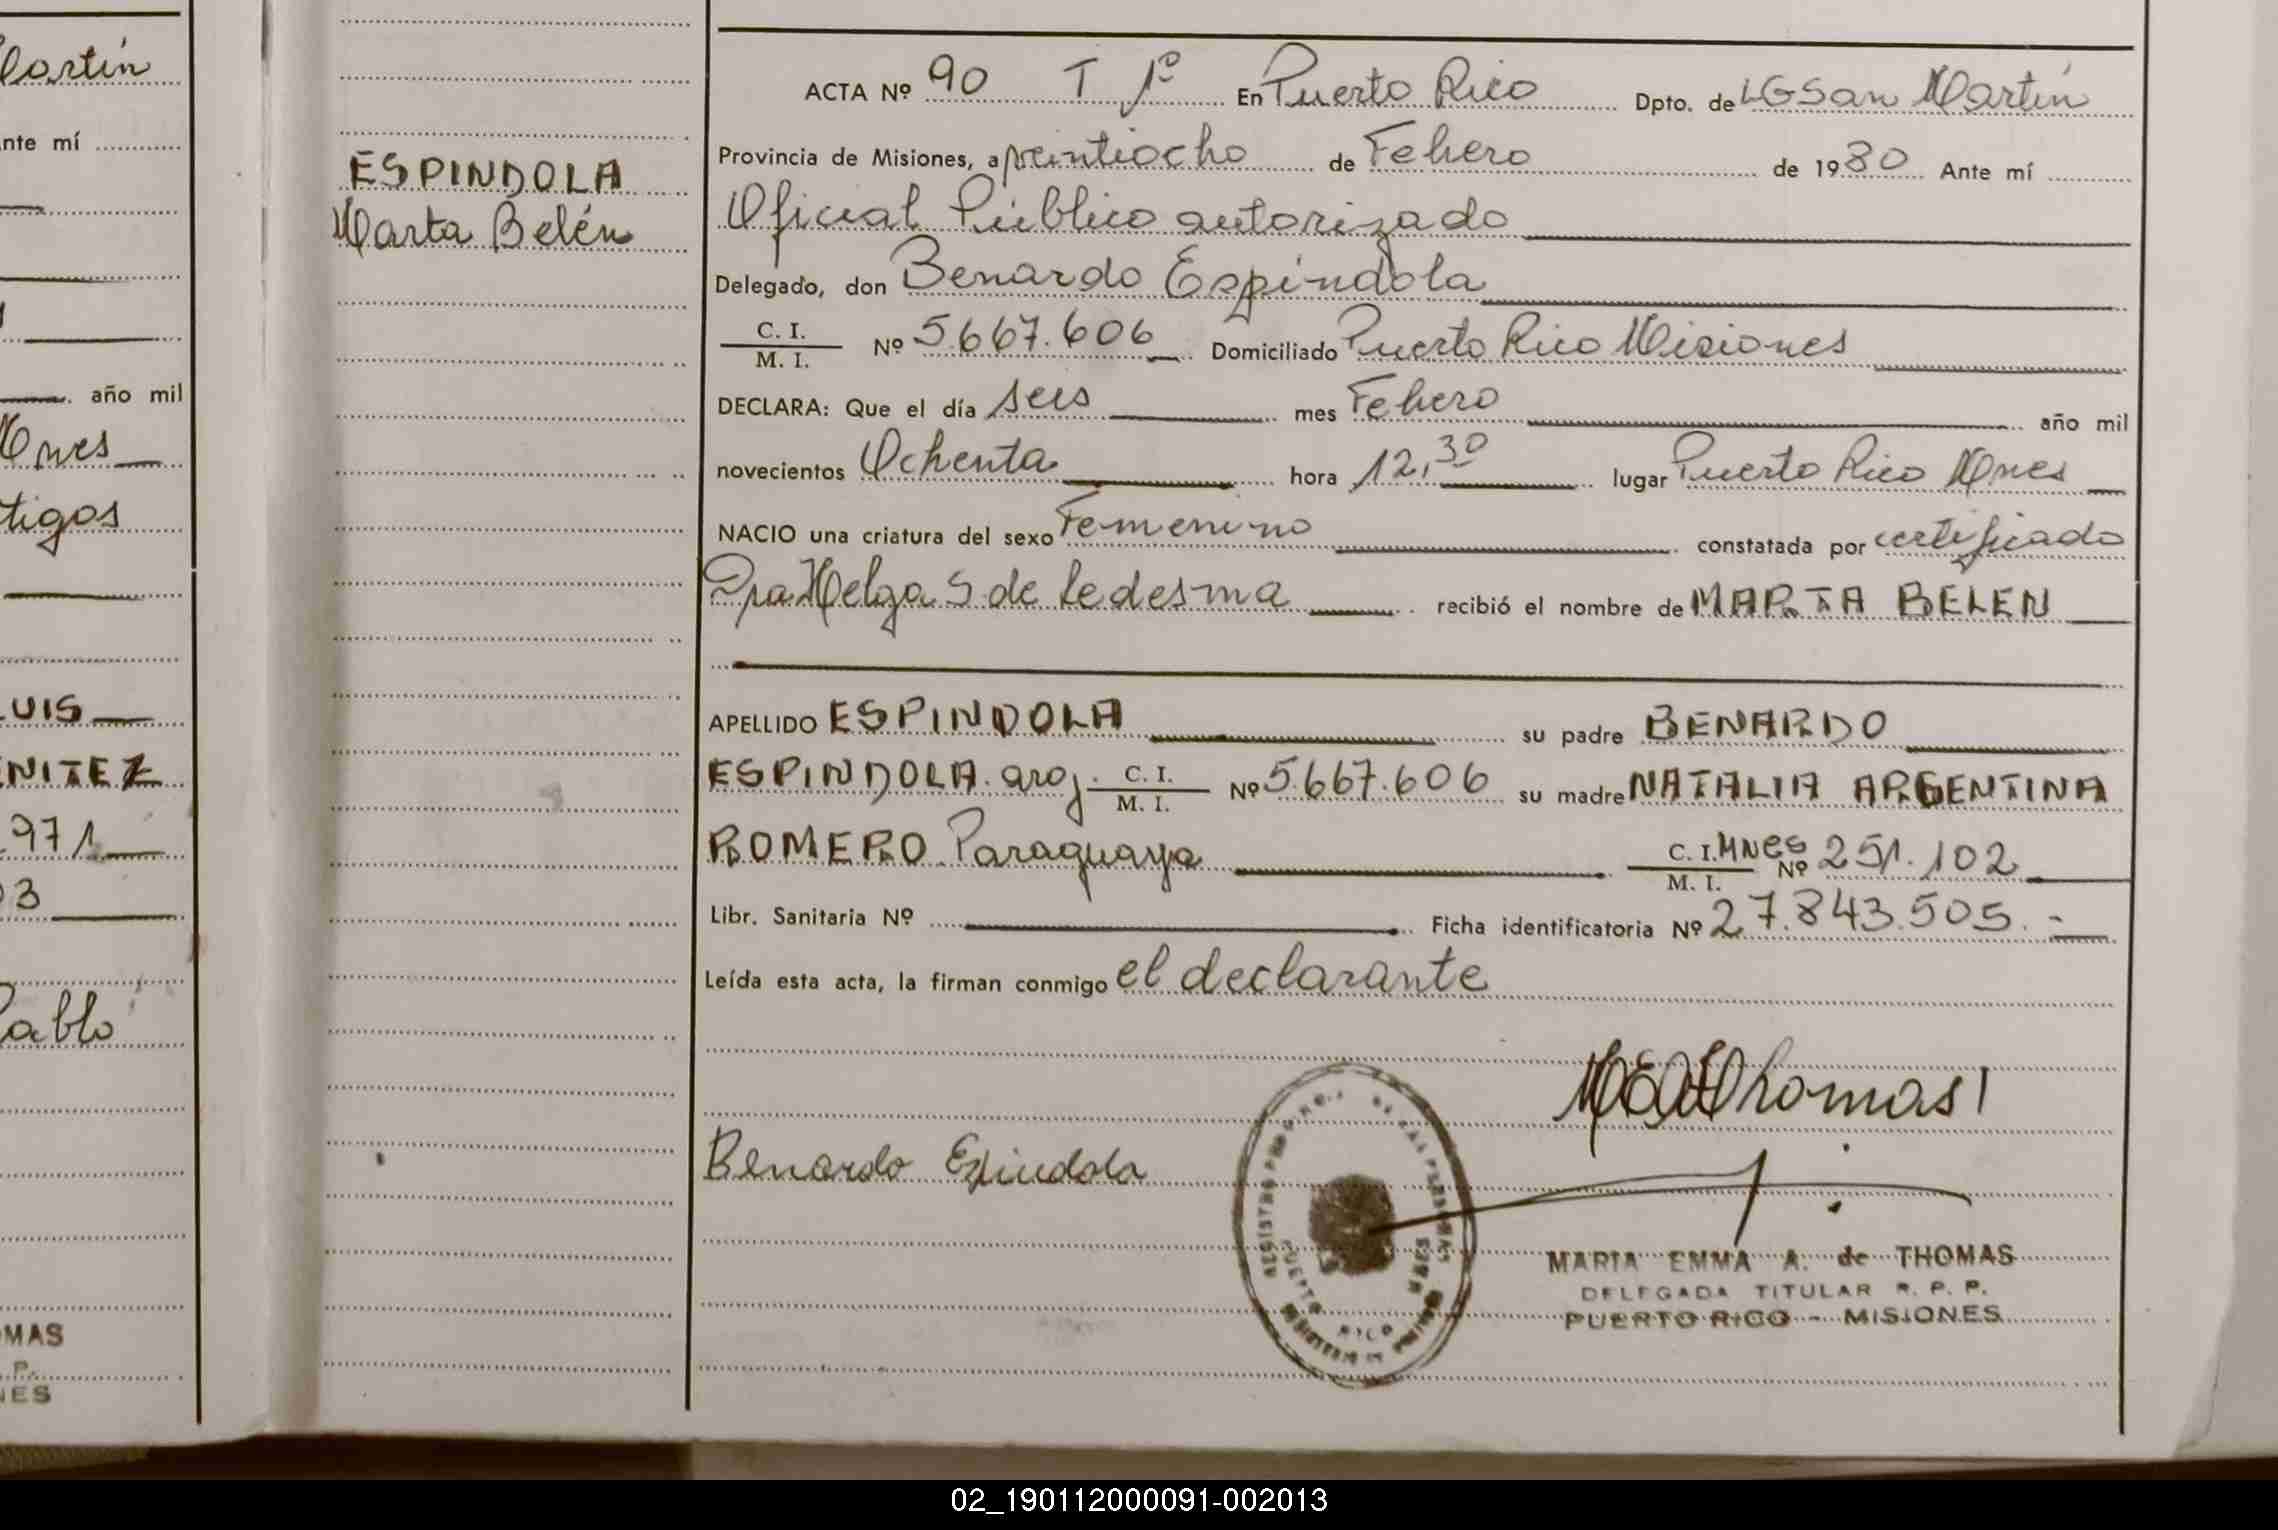 artín
nte mí
año mil
Mnes
tigos
LUIS
ENITEZ
971
03
Pablo
OMAS
P.
NES
ESPINDOLA
Marta Belén
ACTA Nº 90 T 1º En Puerto Rico Dpto. de LG San Martín
Provincia de Misiones, a veintiocho de Febrero de 1980 Ante mí
Oficial Público autorizado
Delegado, don Benardo Espíndola
C. I.
M. I. Nº 5.667.606 Domiciliado Puerto Rico Misiones
DECLARA: Que el día seis mes Febrero año mil
novecientos Ochenta hora 12,30 lugar Puerto Rico Mnes
NACIO una criatura del sexo Femenino constatada por certificado
Dra Helga S. de Ledesma recibió el nombre de MARTA BELEN
APELLIDO ESPINDOLA su padre BENARDO
ESPINDOLA. arg. C. I.
M. I. Nº 5.667.606 su madre NATALIA ARGENTINA
ROMERO Paraguaya C. I. MNES
M. I. Nº 251.102
Libr. Sanitaria Nº Ficha identificatoria Nº 27.843.505.-
Leída esta acta, la firman conmigo el declarante
Thomas
Benardo Espindola
PUERTO RICO
MARIA EMMA A. de THOMAS
DELEGADA TITULAR R. P. P.
PUERTO RICO - MISIONES
02_190112000091-002013